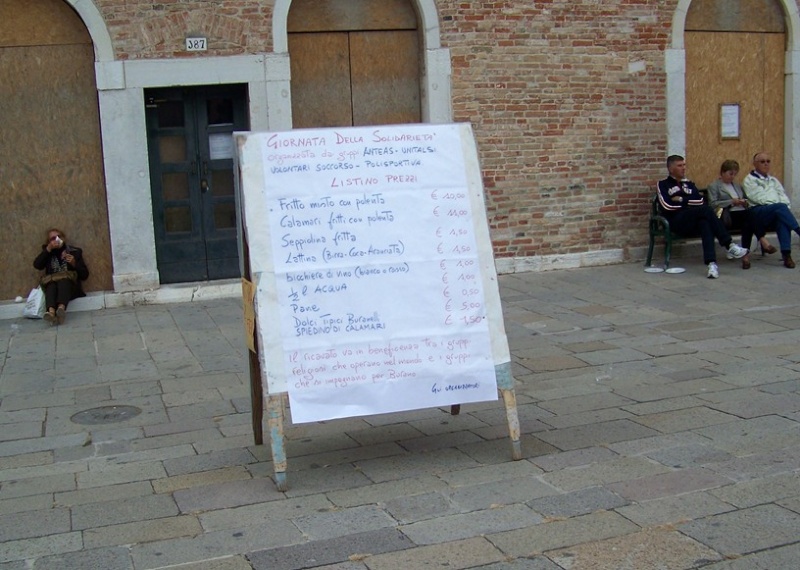 387
GIORNATA DELLA SOLIDARIETA'
organizzata dai gruppi ANTEAS - UNITALSI
VOLONTARI SOCCORSO - POLISPORTIVA
LISTINO PREZZI
Fritto misto con polenta € 10,00
Calamari fritti con polenta € 11,00
Seppiolina fritta € 1,50
Lattina (Birra-Coca-Aranciata) € 1,50
bicchiere di vino (bianco o rosso) € 1,00
½ l ACQUA € 1,00
Pane € 0,50
Dolci tipici Buranelli € 5,00
SPIEDINO DI CALAMARI € 1,50
Il ricavato va in beneficenza tra i gruppi
religiosi che operano nel mondo e i gruppi
che si impegnano per Burano
Gli organizzatori